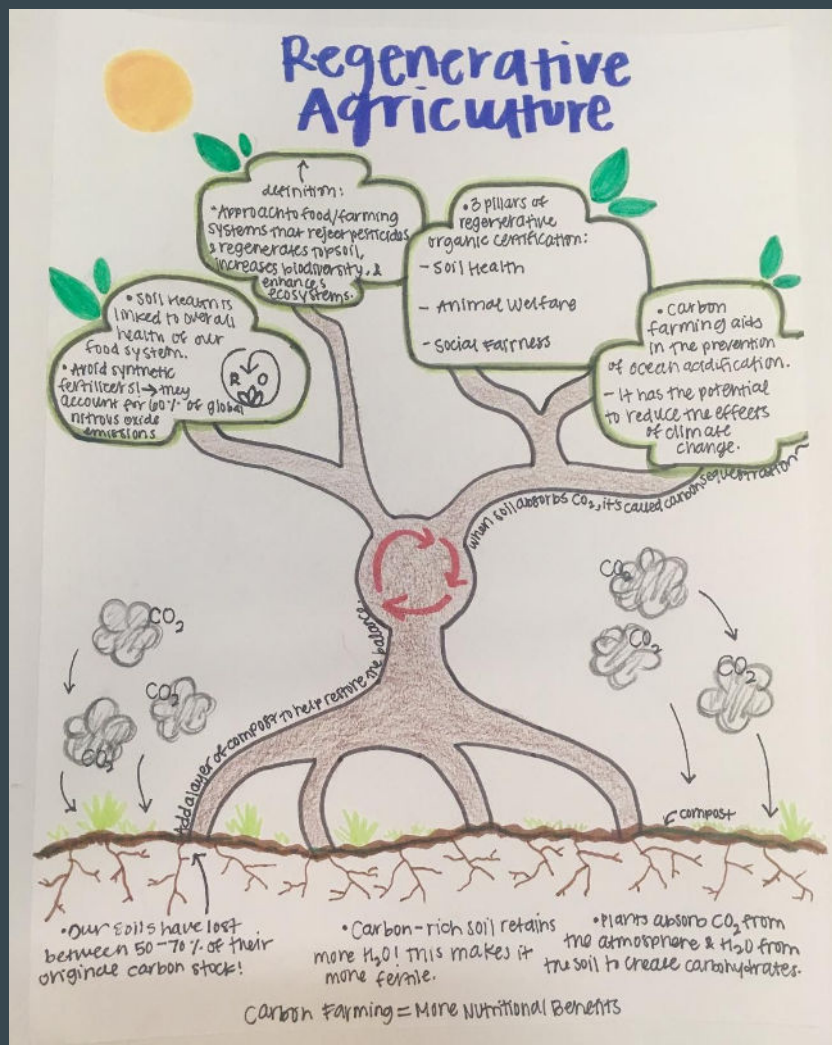 Regenerative
Agriculture
definition:
•Approach to food/farming
systems that reject pesticides
& regenerates topsoil,
increases biodiversity, &
enhances
ecosystems.
•3 pillars of
regenerative
organic certification:
- Soil Health
- Animal Welfare
- Social Fairness
• Soil Health is
linked to overall
health of our
food system.
• Avoid synthetic
fertilizers! → they
account for 60% of global
nitrous oxide
emissions
R O
• Carbon
farming aids
in the prevention
of ocean acidification.
- It has the potential
to reduce the effects
of climate
change.
when soil absorbs CO₂, it's called carbon sequestration
Add a layer of compost to help restore the balance!
CO₂
CO₂
CO₂
CO₂
CO₂
CO₂
compost
•Our soils have lost
between 50-70% of their
originale carbon stock!
•Carbon-rich soil retains
more H₂O! This makes it
more fertile.
•Plants absorb CO₂ from
the atmosphere & H₂O from
the soil to create carbohydrates.
Carbon Farming = More Nutritional Benefits